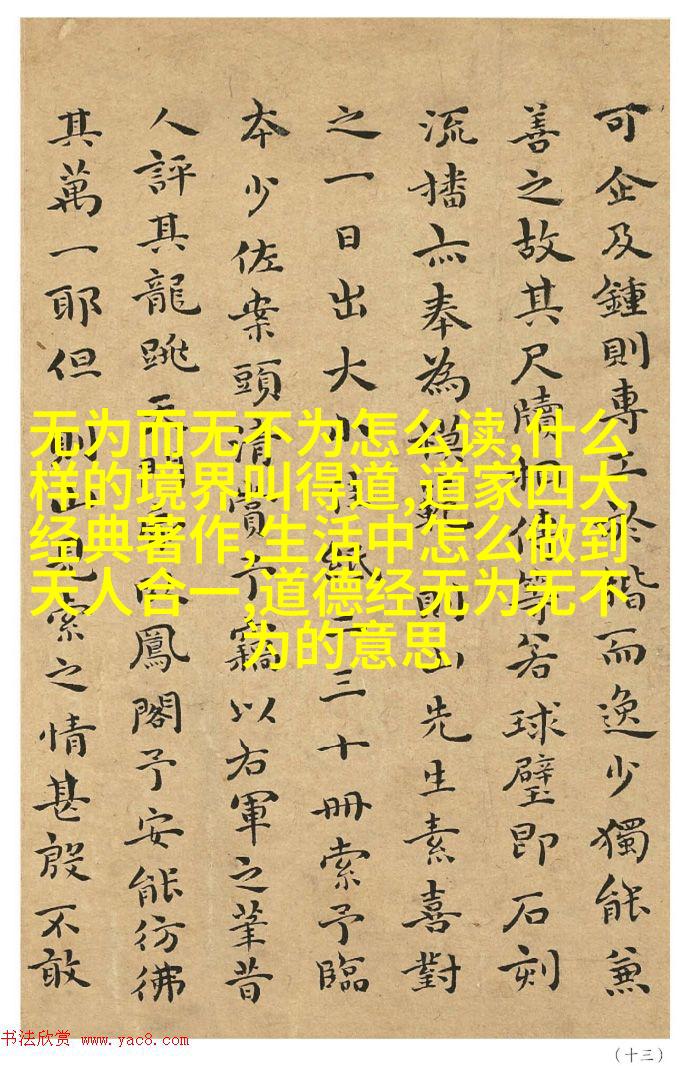 可企及鍾則專工於楷而逸少獨能兼
善之故其尺牘相傳等若球璧即石刻
流播亦奉為模範則山先生素喜對
之一日出大小三十冊索予臨
本少佐案頭清賞予竊以右軍之筆昔
人評其龍跳天門虎臥鳳閣予安能彷彿
其萬一耶但則山見索之情甚殷不敢
无为而无不为怎么读,什么
样的境界叫得道,道家四大
经典著作,生活中怎么做到
天人合一,道德经无为无不
为的意思
书法欣赏 www.yac8.com
(十三)